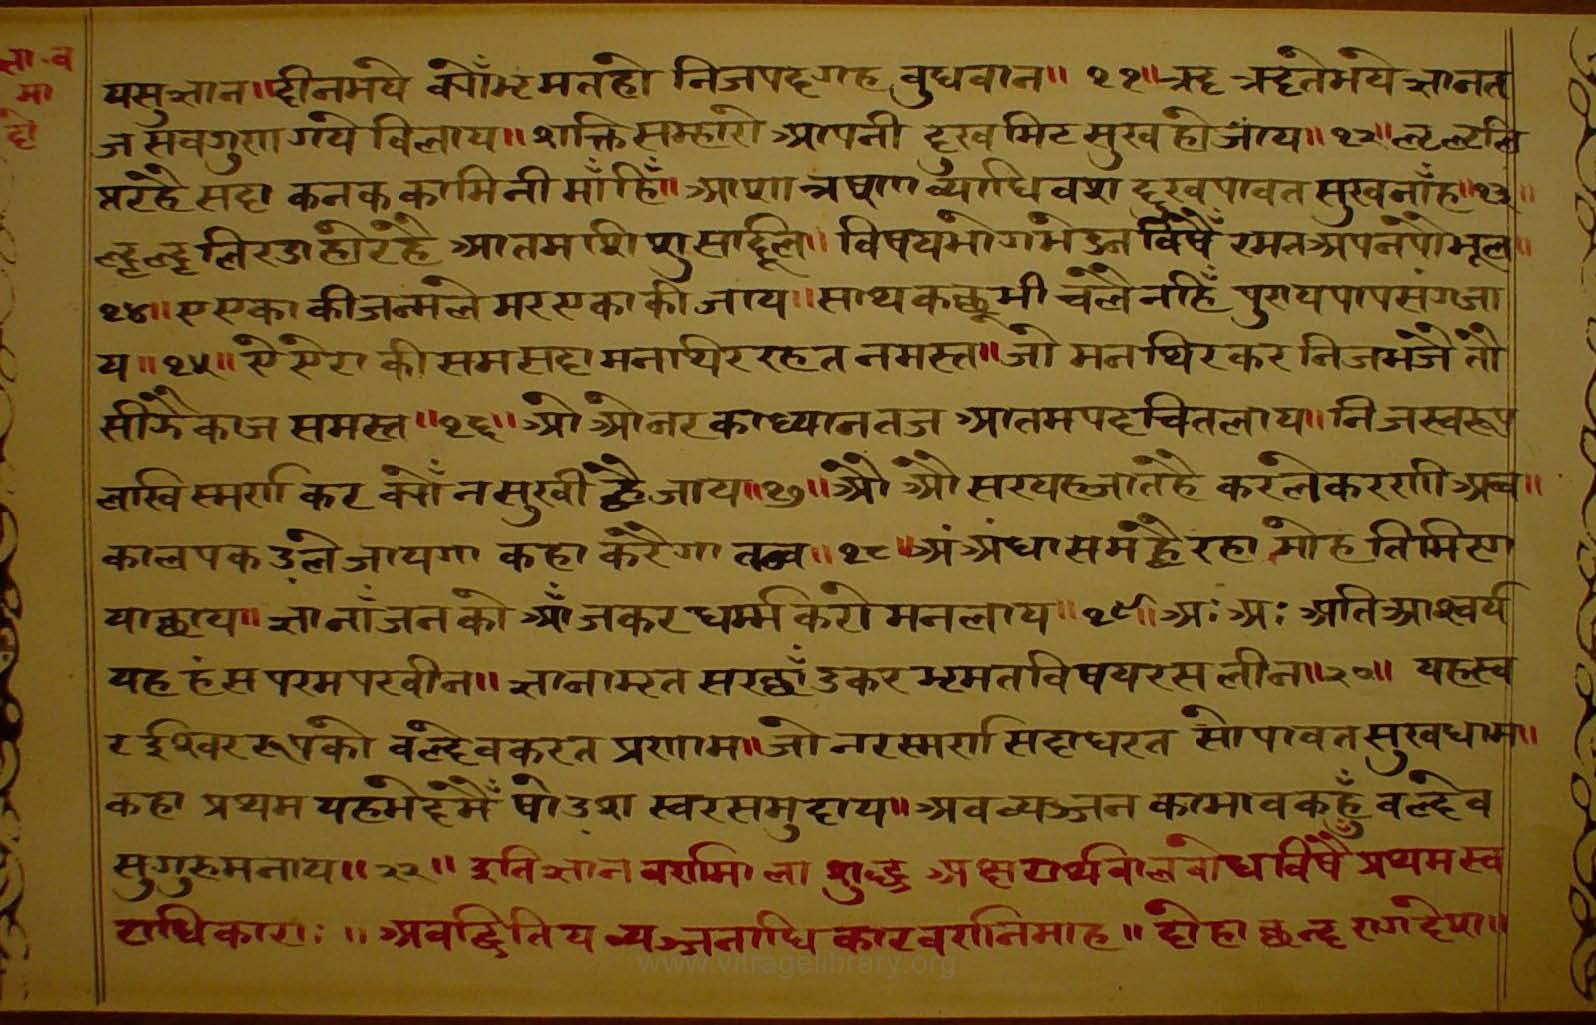 ज्ञा.व
मा
दो
यसुज्ञान॥ दीनभये क्योँ भ्रमतहो निजपदगह वुधवान॥ ११॥ ऋ ऋतेभये ज्ञानत
ज सवगुण गये विलाय॥ शक्ति सम्हारो आपनी दुख मिट सुख हो जाय॥ १२॥ ऌ ऌलि
प्तरहै सदा कनक कामिनी माँहिँ॥ आशा त्रषणा व्याधि वश दुखपावत सुखनाँह॥ १३॥
ॡ ॡलिरडाहोरहै आतमशिशु सार्दूल॥ विषयभोगमेडन विषैँ रमत अपनपौभूल॥
१४॥ ए एकाकी जन्मले मर एकाकी जाय॥ साथ कछू भी चलै नहिँ पुण्यपाप संगजा
य॥ १५॥ ऐ ऐराकी सम सदा मनाथिर रहत नमस्त॥ जो मन थिरकर निजभजै तौ
सीझै काज समस्त॥ १६॥ ओ ओनर काध्यानतज आतमपद चितलाय॥ निजस्वरूप
लखि स्मर्ण कर क्योँ न सुखी ह्वै जाय॥ १७॥ औ औसरयह जातहै करले करणी अव्व॥
काल पकडले जायगा कहा करैगा तव्व॥ १८॥ अं अंधासम ह्वैरहा मोह तिमिरग
याछाय॥ ज्ञानाँजनको आँजकर धर्म्म करो मनलाय॥ १९॥ अः अः अति आश्चर्य
यह हंस परम परवीन॥ ज्ञानाम्रत सरछाँडकर भ्रमत विषय रस लीन॥ २०॥ यहस्व
र ईश्वर रूपको वल्देव करत प्रणाम॥ जो नरस्मरण सदा धरत सो पावत सुखधाम॥
कहा प्रथम यहभेदमैँ षोडश स्वर समुदाय॥ अव व्यञ्जन काभाव कहुँ वल्देव
सुगुरु मनाय॥ २२॥ इति ज्ञान वर्णमाला शुद्ध अक्षरार्थ वालवोध विषैँ प्रथम स्व
राधिकारः॥ अव द्वितिय व्यञ्जनाधिकार वर्णनिमाह॥ दोहा छन्द राग देश॥
www.vitragelibrary.org